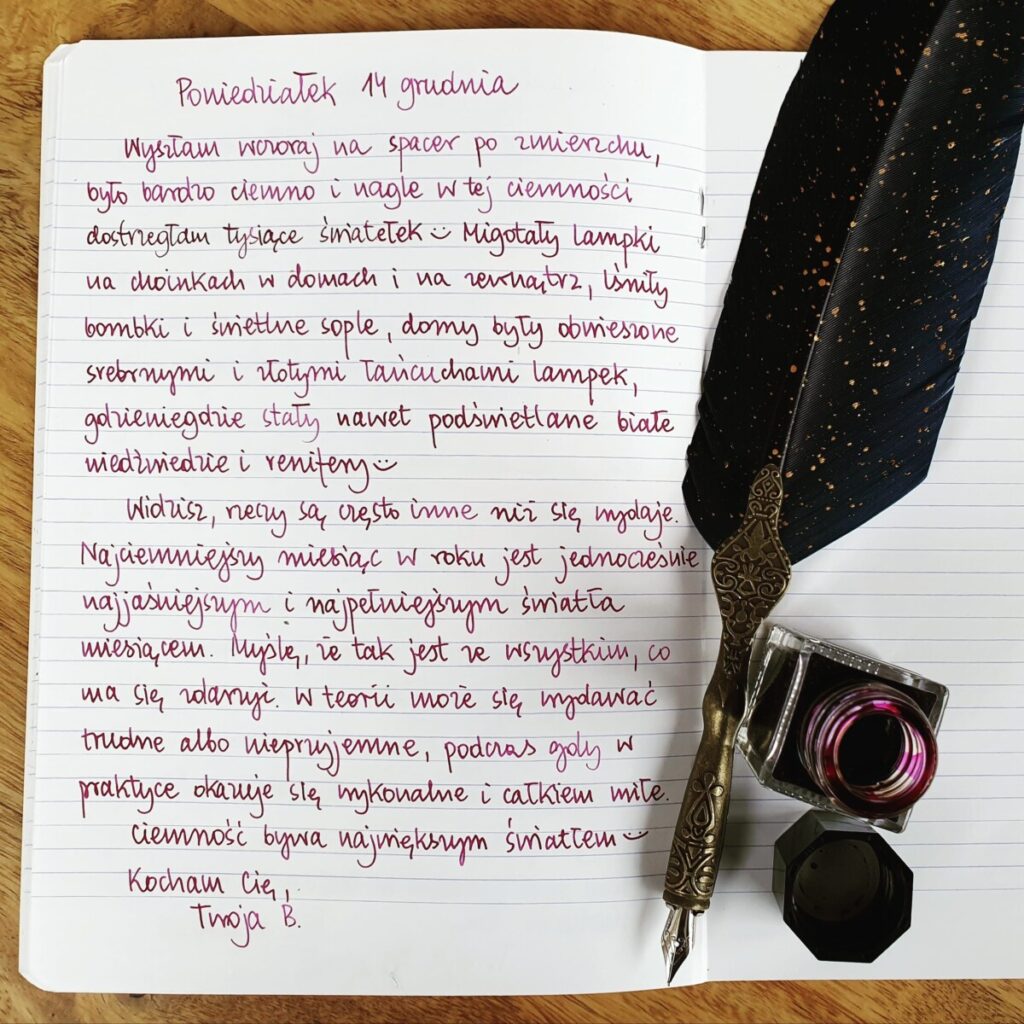 Poniedziałek 14 grudnia
Wyszłam wczoraj na spacer po zmierzchu,
było bardzo ciemno i nagle w tej ciemności
dostrzegłam tysiące światełek :) Migotały lampki
na choinkach w domach i na zewnątrz, lśniły
bombki i świetlne sople, domy były obwieszone
srebrnymi i złotymi łańcuchami lampek,
gdzieniegdzie stały nawet podświetlane białe
niedźwiedzie i renifery :)
Widzisz, rzeczy są często inne niż się wydaje.
Najciemniejszy miesiąc w roku jest jednocześnie
najjaśniejszym i najpełniejszym światła
miesiącem. Myślę, że tak jest ze wszystkim, co
ma się zdarzyć. W teorii może się wydawać
trudne albo nieprzyjemne, podczas gdy w
praktyce okazuje się wykonalne i całkiem miłe.
Ciemność bywa największym światłem :)
Kocham Cię,
Twoja B.